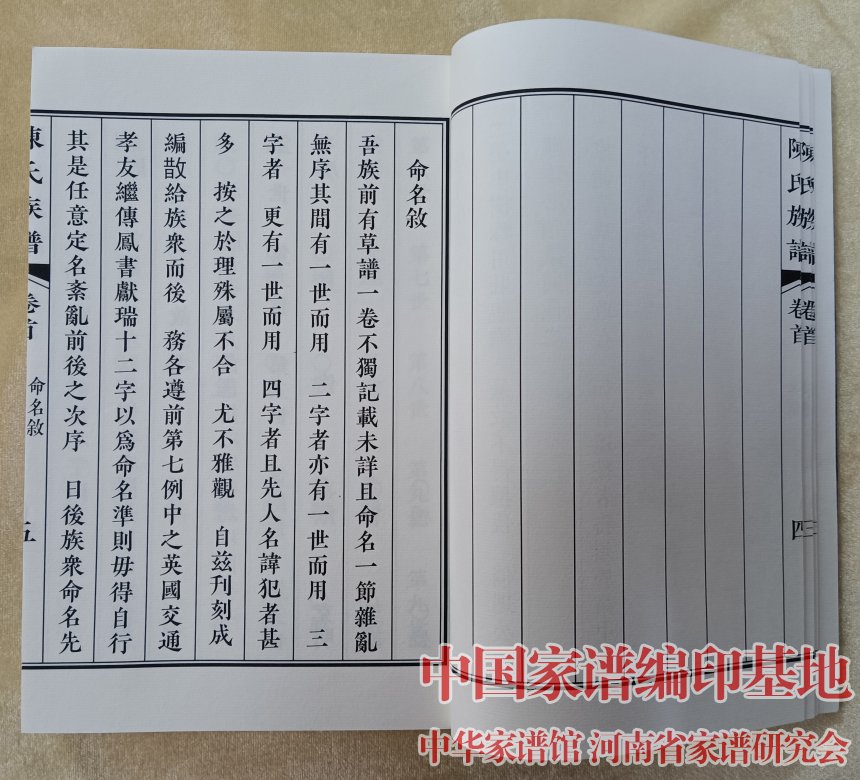 命名敘
吾族前有草譜一卷不獨記載未詳且命名一節雜亂
無序其間有一世而用 二字者亦有一世而用 三
字者 更有一世而用 四字者且先人名諱犯者甚
多 按之於理殊屬不合 尤不雅觀 自茲刊刻成
編散給族衆而後 務各遵前第七例中之英國交通
孝友繼傳鳳書獻瑞十二字以爲命名準則毋得自行
其是任意定名紊亂前後之次序 日後族衆命名先
陳氏族譜 卷首 命名敘 五
陳氏族譜 卷首 四
三
中国家谱编印基地
中华家谱馆 河南省家谱研究会